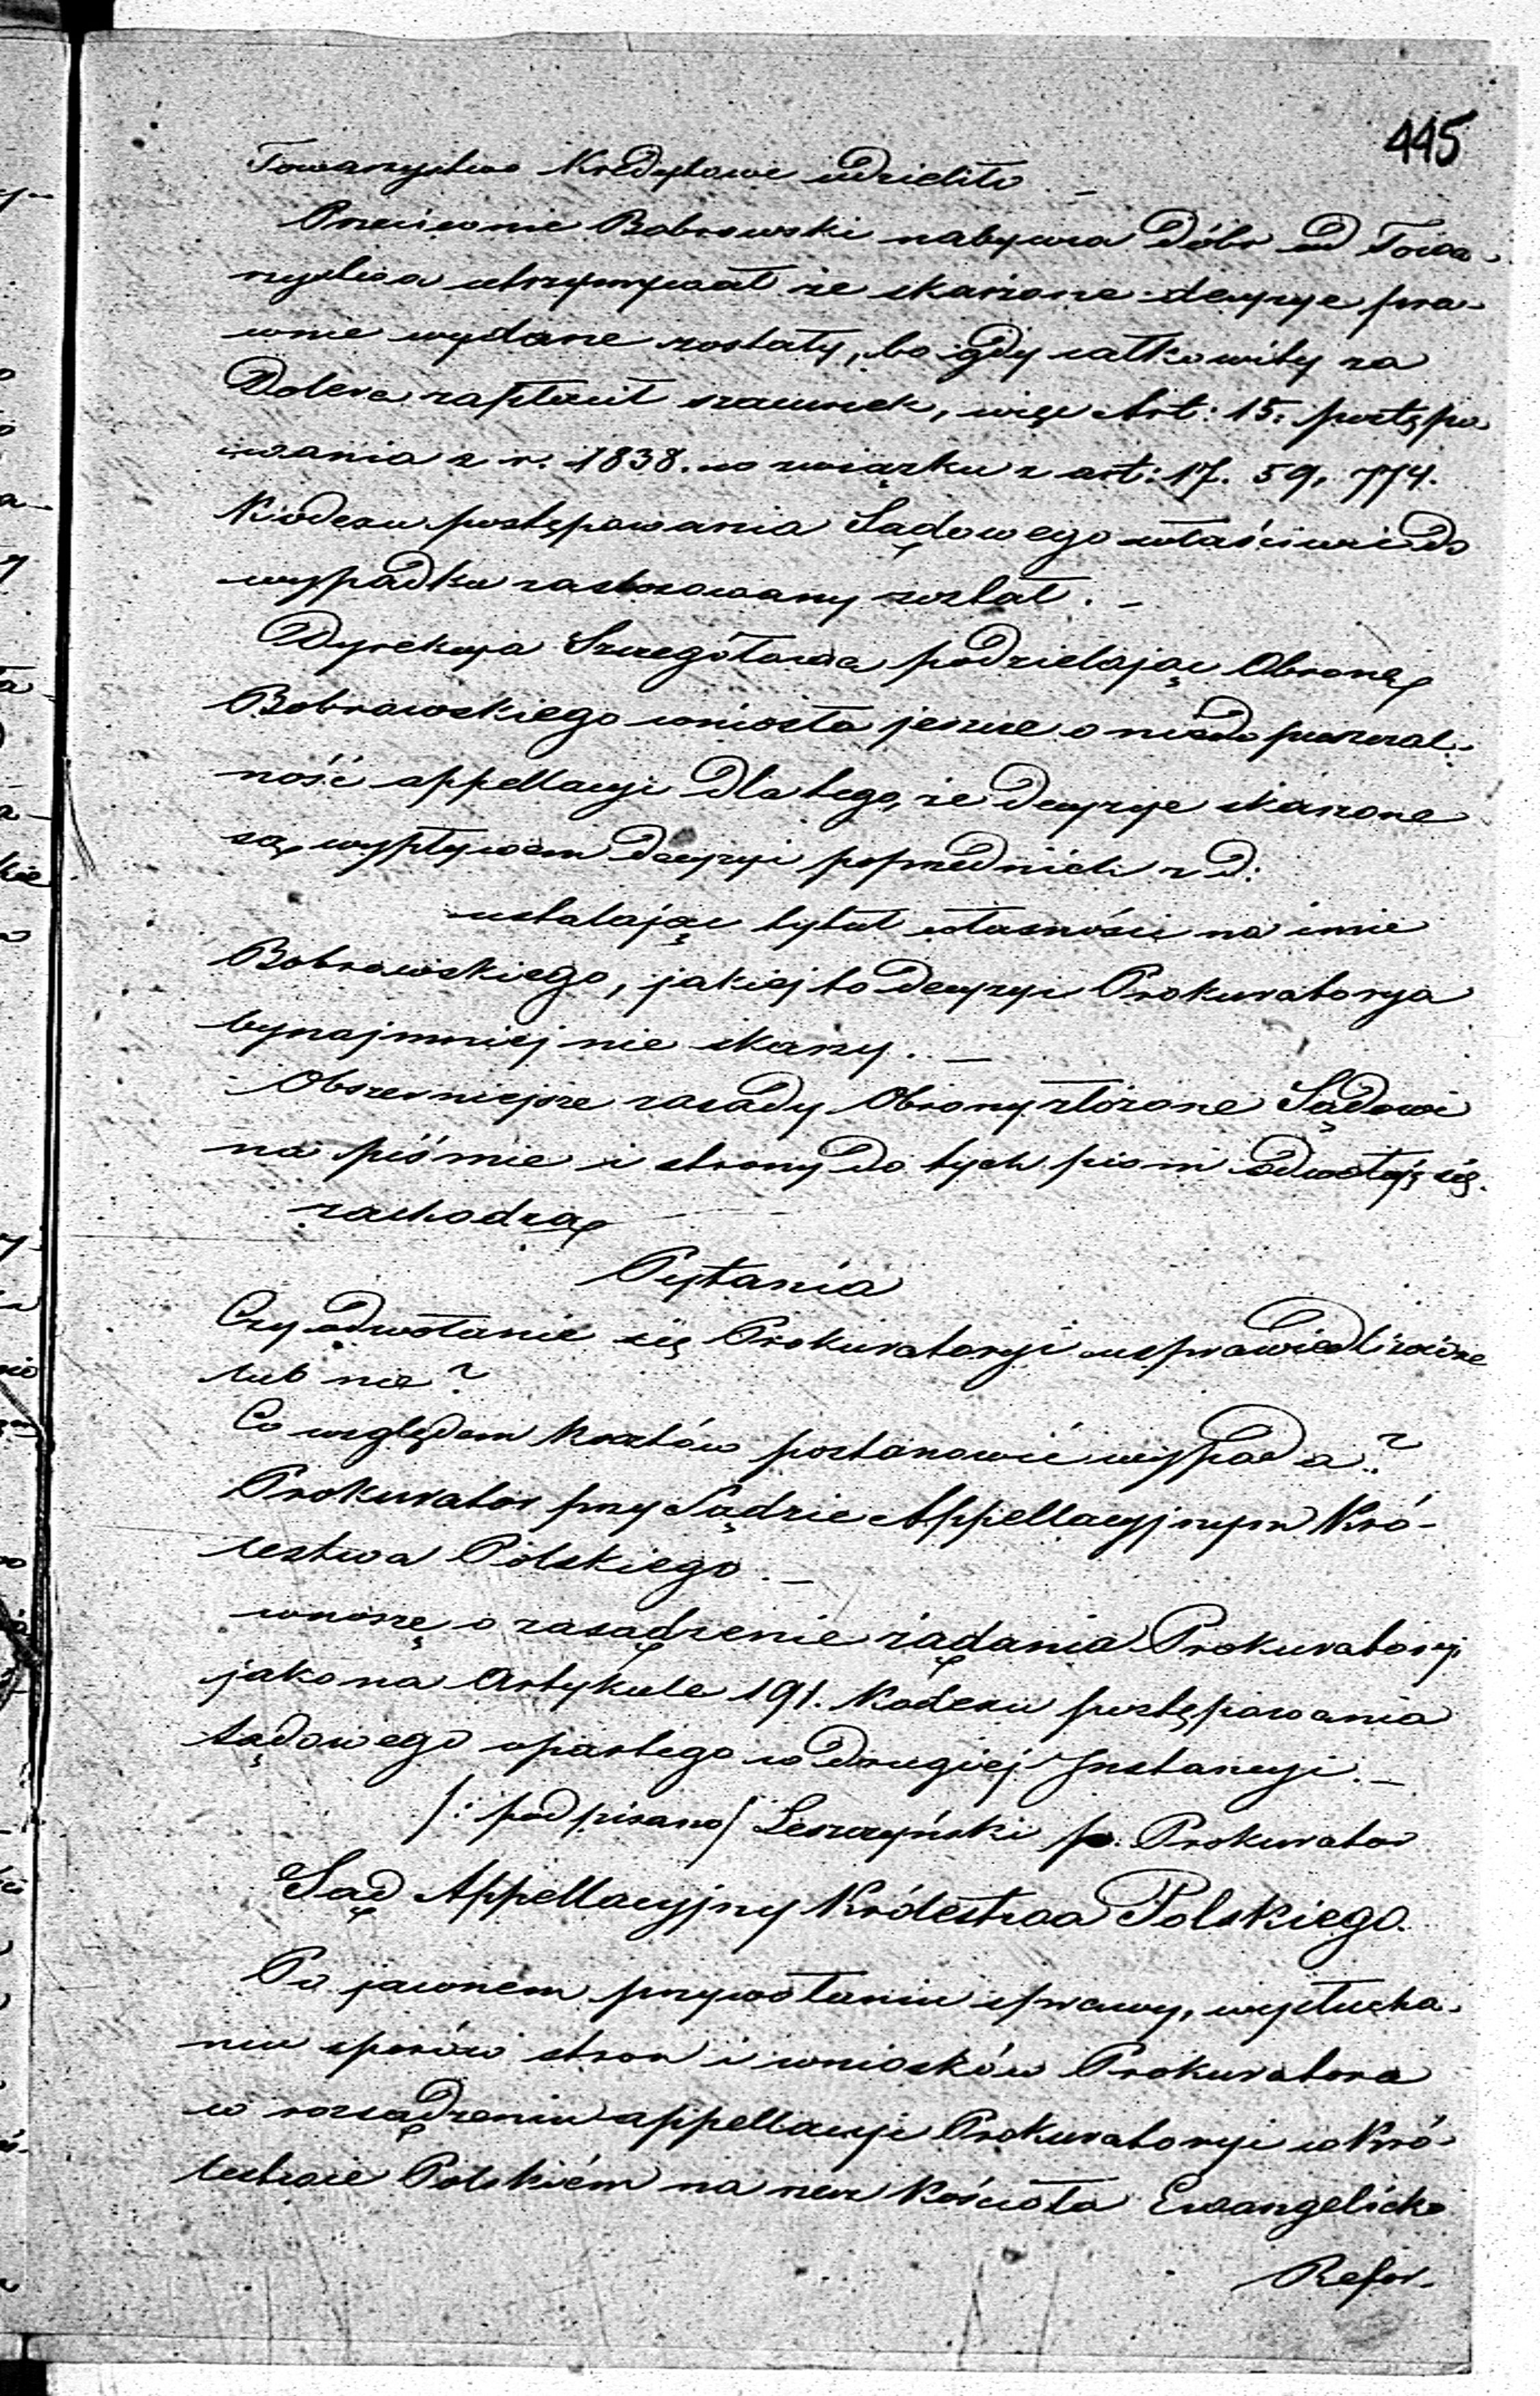 445
Towarzystwo Kredytowe udzieliło –
Przeciwnie Bobrowski nabywca Dóbr od Towa-
rzystwa utrzymywał że skarżone decyzye pra-
wnie wydane zostały, bo gdy całkowity za
Dobra zapłacił szacunek, więc Art: 15. postępo
wania z r. 1838. w związku z art: 17. 59. 774.
Kodexu postępowania Sądowego właściwie do
wypadku zastosowany został. –
Dyrekcya Szczegółowa podzielając Obronę
Bobrowskiego wniosła jeszcze o niedopuszczal-
ność appellacyi dla tego, że decyzye skarżone
są wypływem decyzyi poprzednich z d:
ustalając tytuł własności na imie
Bobrowskiego, jakiej to decyzyi Prokuratorya
bynajmniej nie skarży. –
Obszerniejsze zasady Obrony złożone Sądowi
na piśmie i strony do tych pism odwołują się.
zachodzą
Pytania
Czy odwołanie się Prokuratoryi usprawiedliwione
lub nie?
Co względem kosztów postanowić wypada?
Prokurator przy Sądzie Appellacyjnym Kró-
lestwa Polskiego. –
wnoszę o zasądzenie żądania Prokuratoryi
jako na Artykule 191. Kodexu postępowania
sądowego opartego w drugiej Instancyi. –
/: podpisano/ Leszczyński p. Prokurator
Sąd Appellacyjny Królestwa Polskiego.
Po jawnem przywołaniu sprawy, wysłucha-
niu sporów stron i wniosków Prokuratora
w rozsądzeniu appellacyi Prokuratoryi w Kró-
lestwie Polskiém na rzecz Kościoła Ewangelicko
Refor-